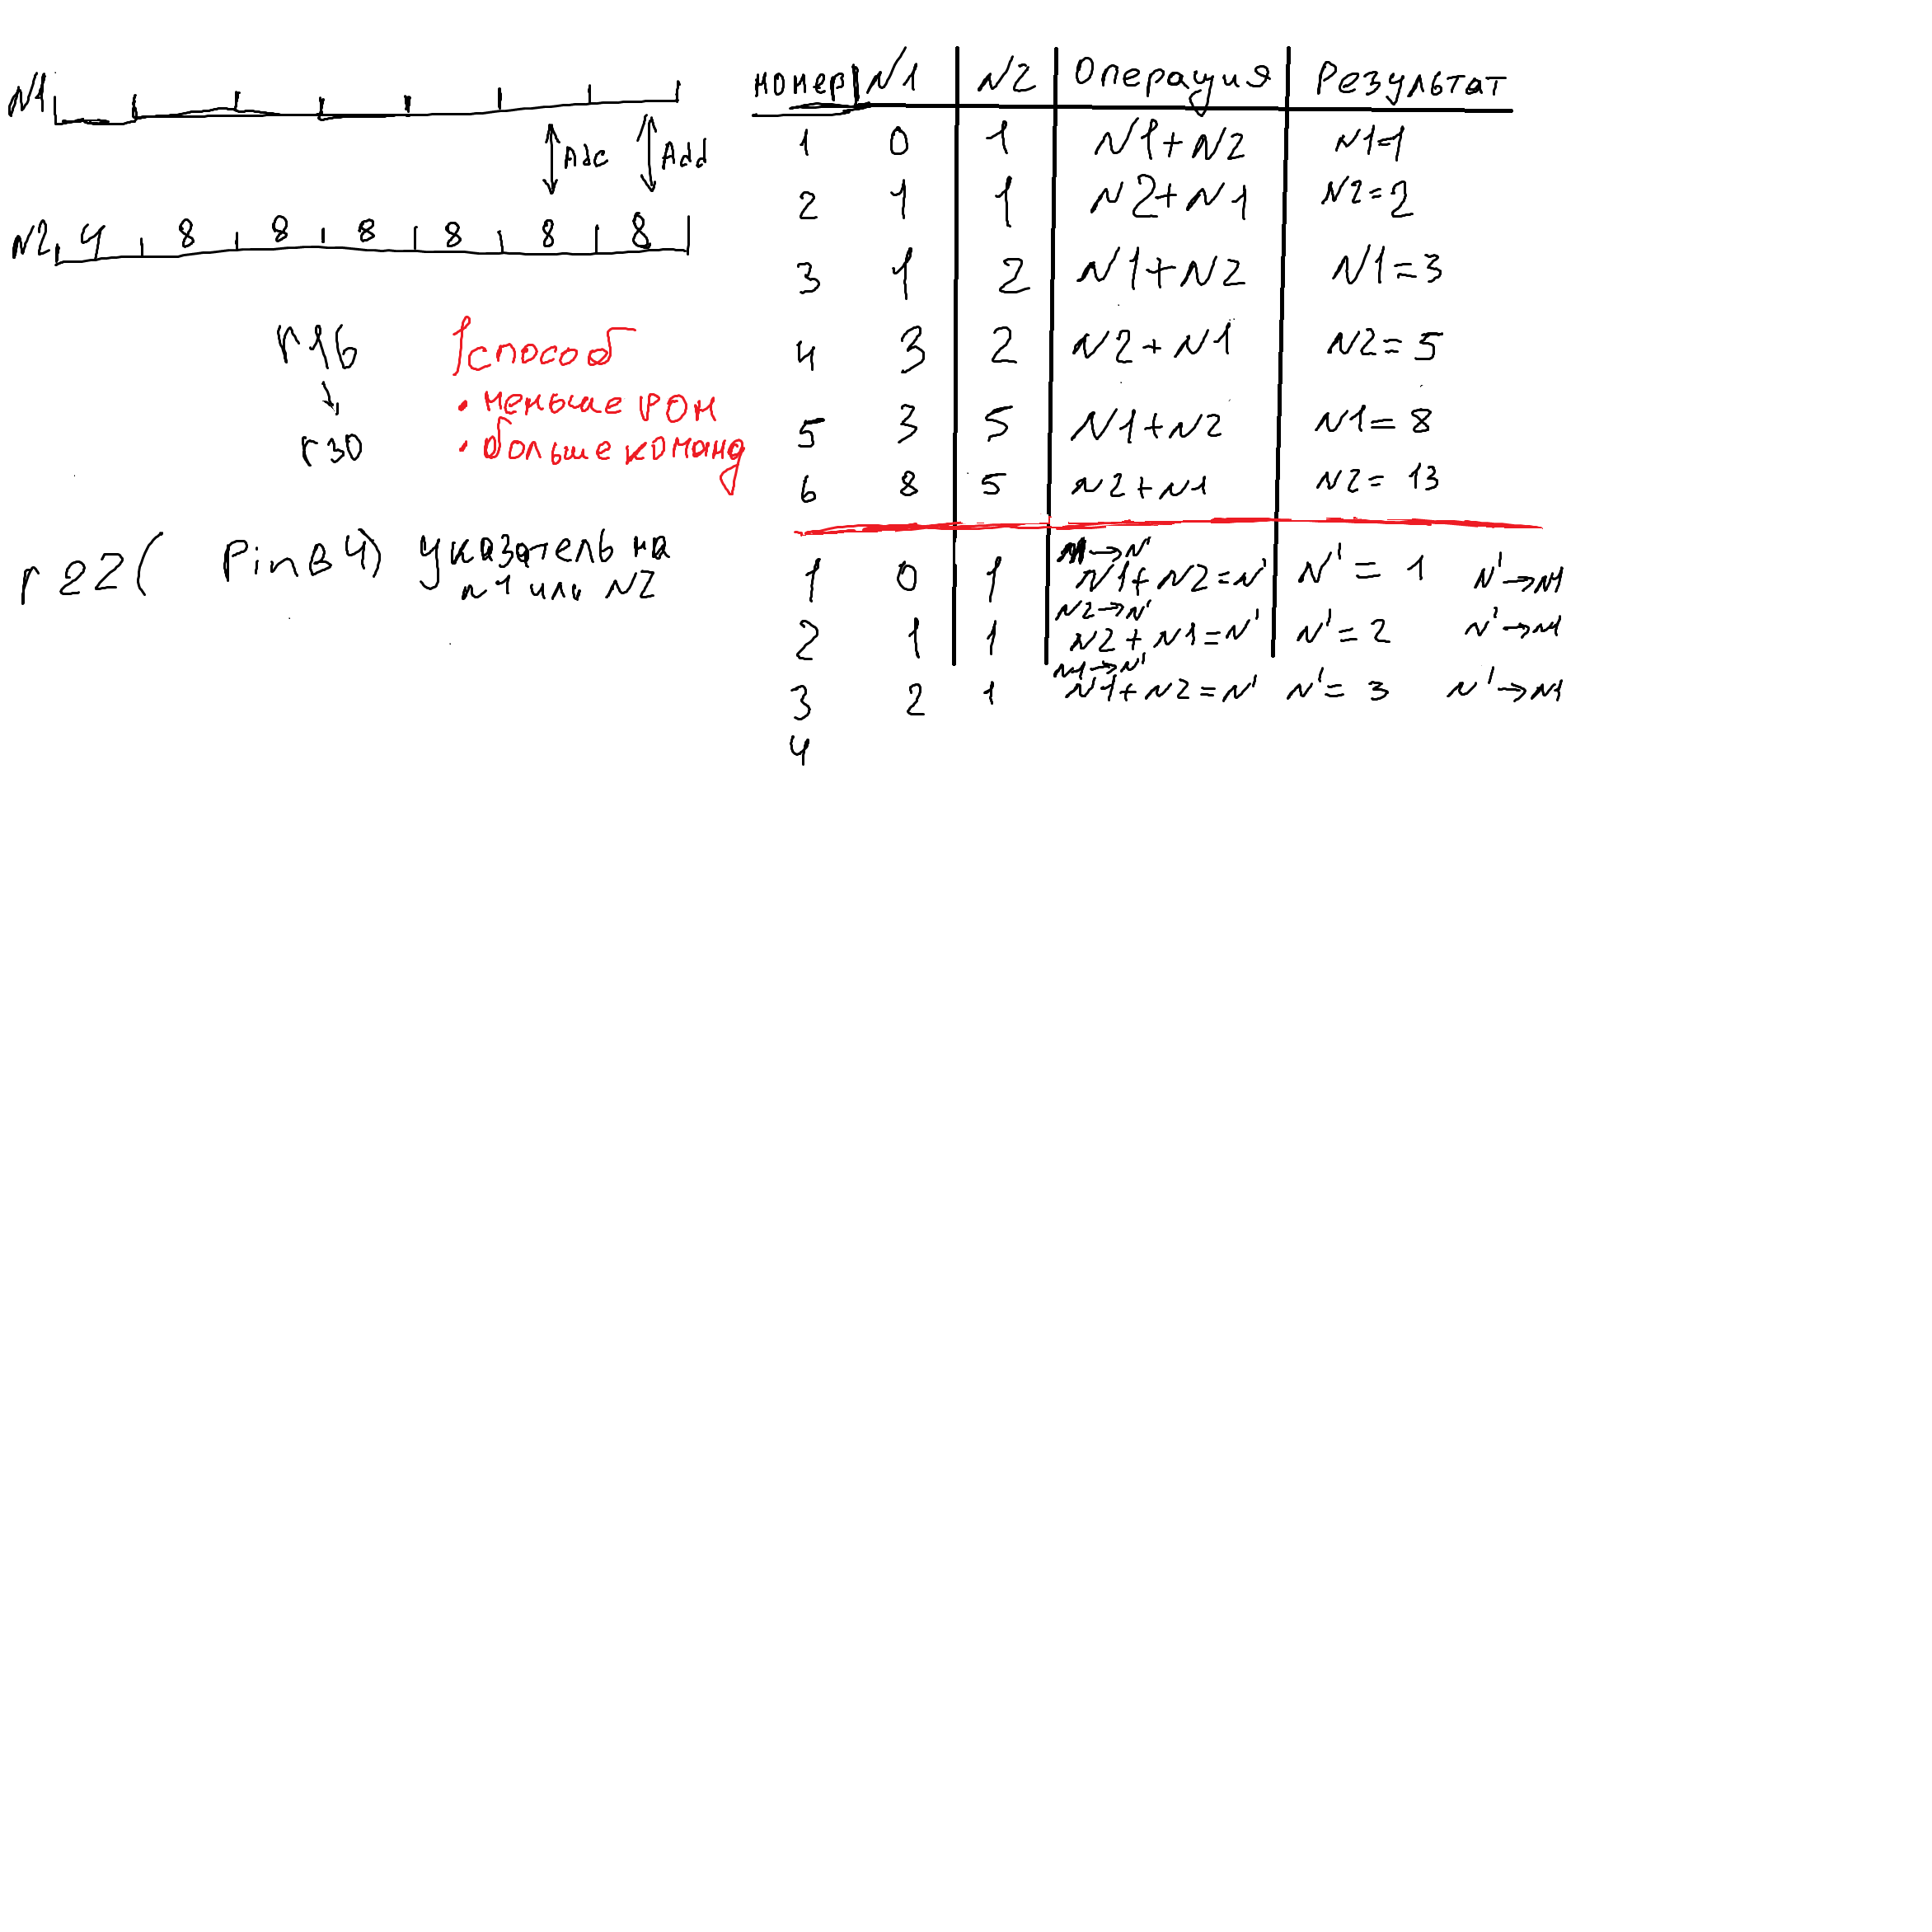 N1
Adc Add
N2 4 8 8 8 8 8 8
r16
↓
r30
1 способ
• меньше РОН
• больше команд
r22( PinB4) указатель на
n1 или N2
номер N1 N2 Операция Результат
1 0 1 N1+N2 N1=1
2 1 1 N2+N1 N2=2
3 1 2 N1+N2 N1=3
4 3 2 N2+N1 N2=5
5 3 5 N1+N2 N1=8
6 8 5 N2+N1 N2=13
N1→N'
1 0 1 N1+N2=N' N'=1 N'→N1
N2→N'
2 1 1 N2+N1=N' N'=2 N'→N1
N1→N'
3 2 1 N1+N2=N' N'=3 N'→N1
4